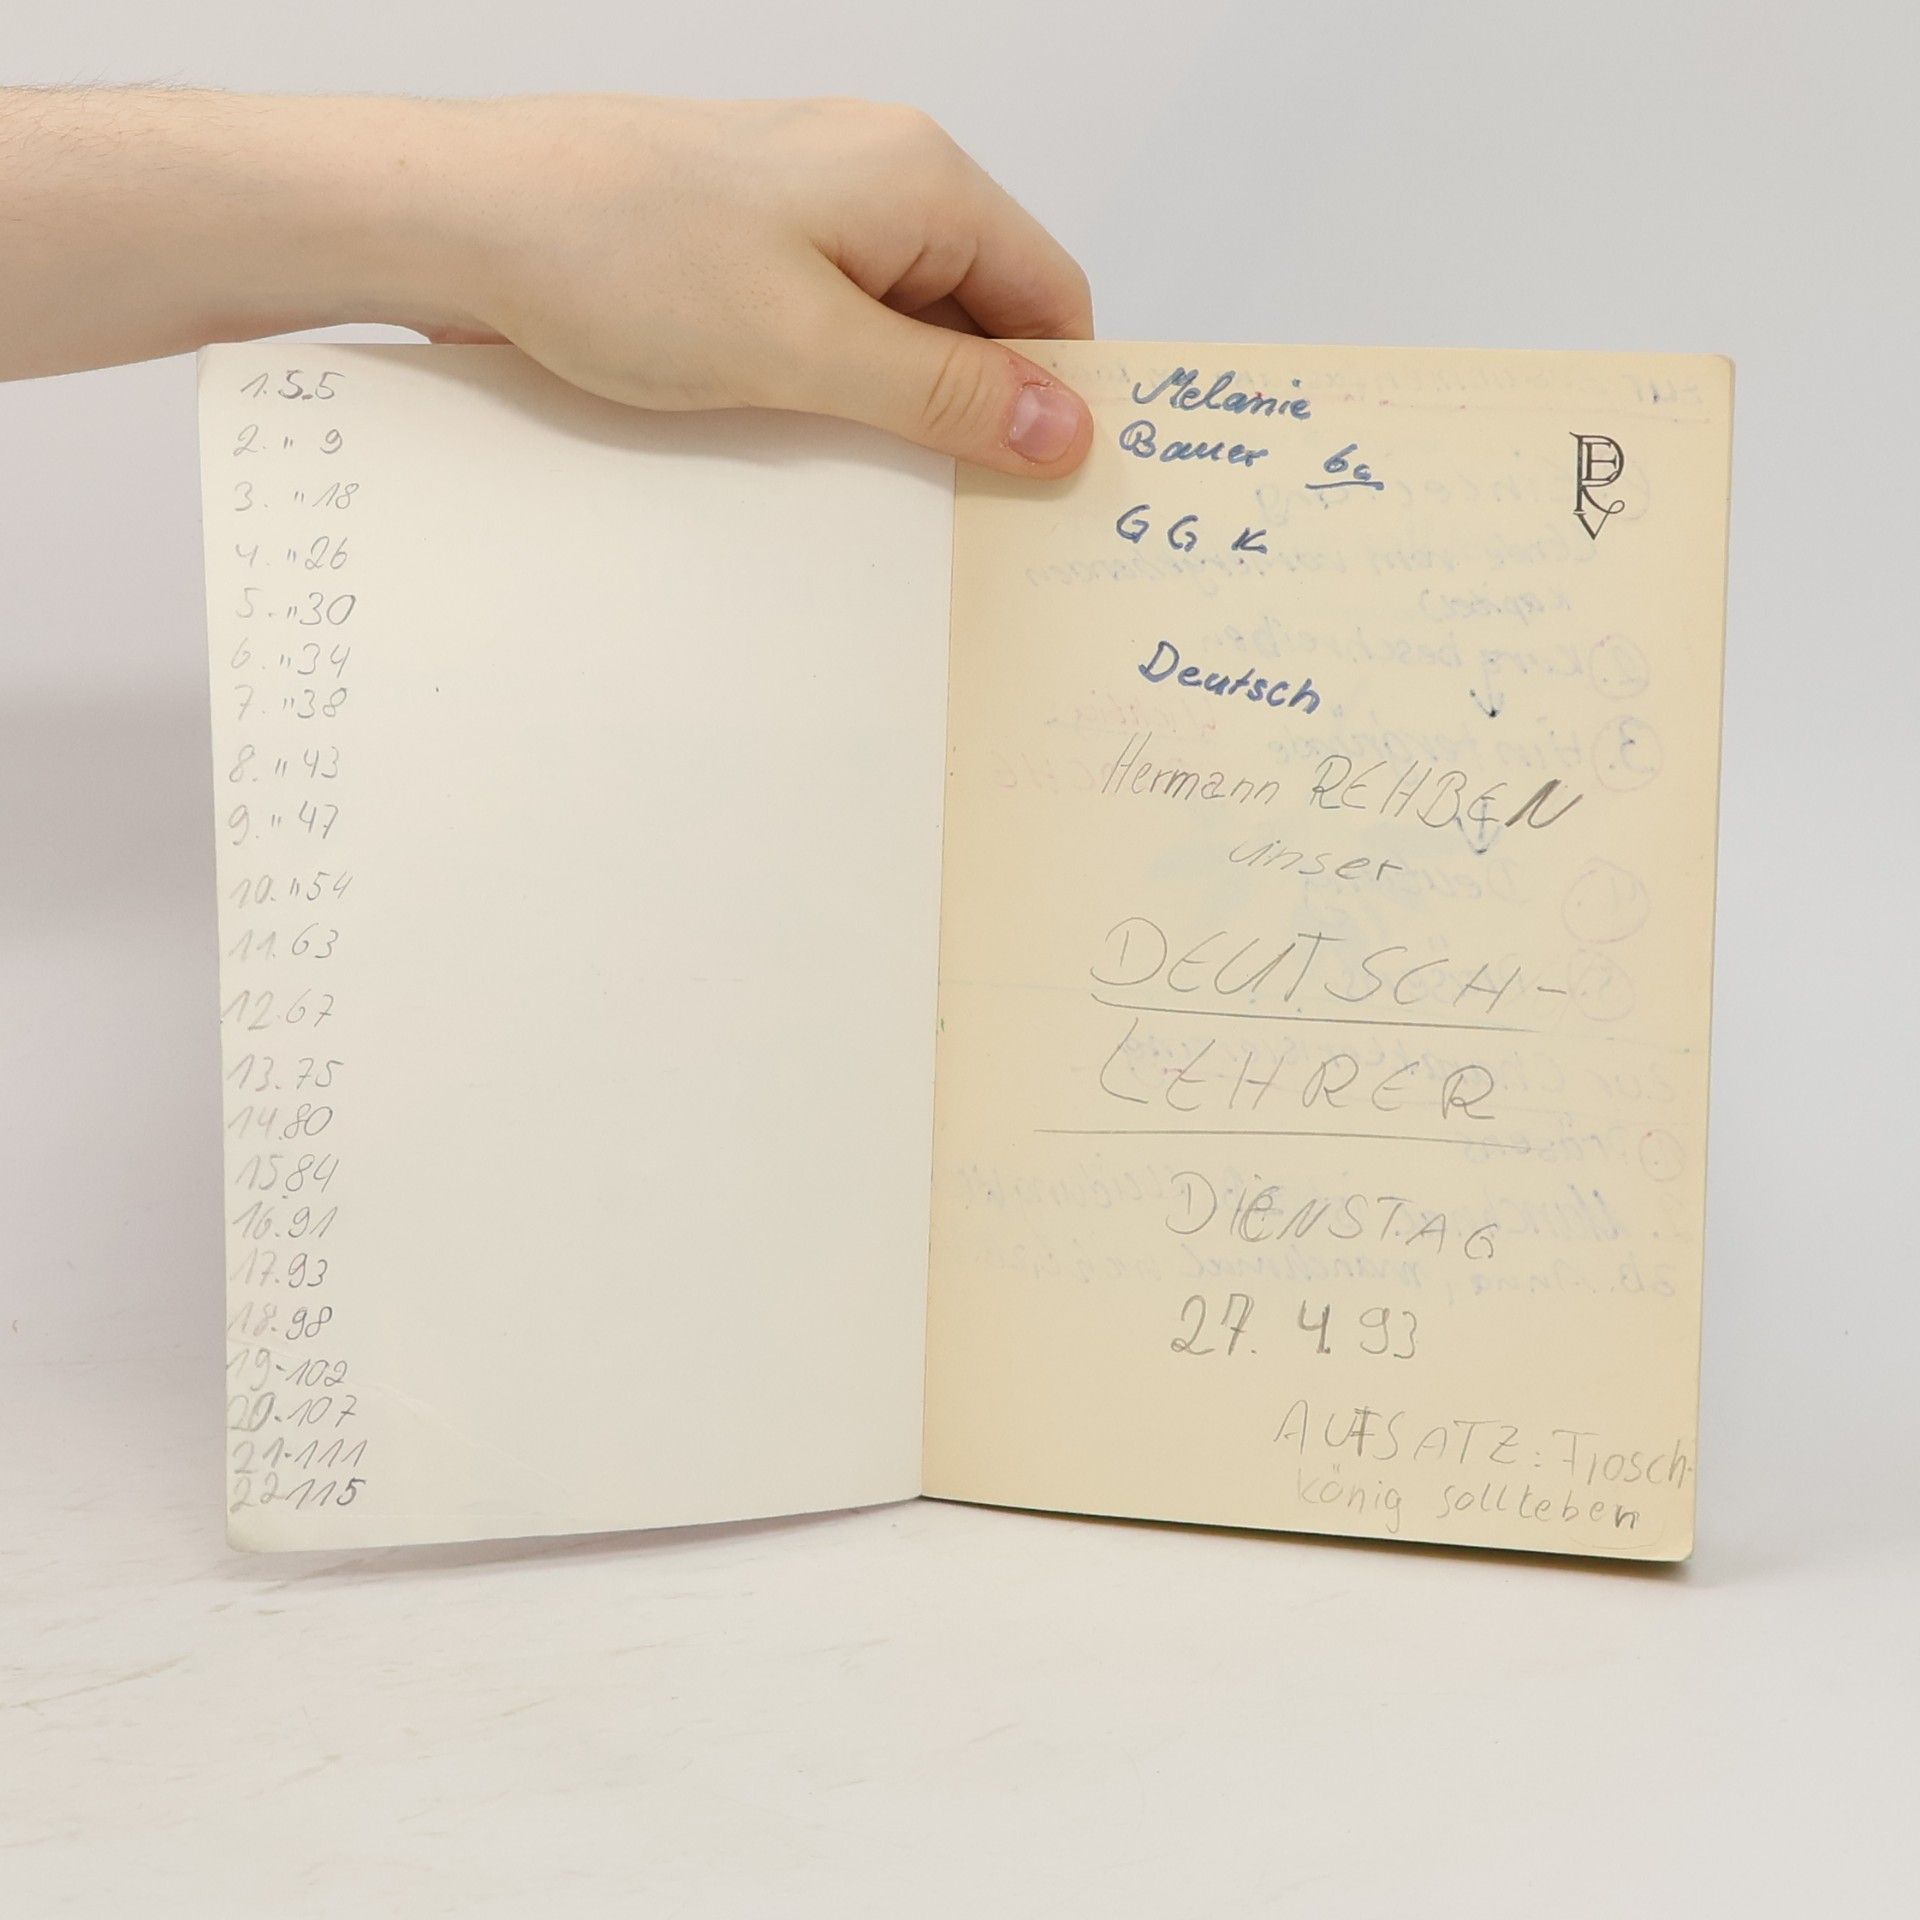 1. S. 5
2. " 9
3. " 18
4. " 26
5. " 30
6. " 34
7. " 38
8. " 43
9. " 47
10. " 54
11. 63
12. 67
13. 75
14. 80
15. 84
16. 91
17. 93
18. 98
19. 102
20. 107
21. 111
22 115
Melanie
Bauer 6a
G G K
Deutsch
Hermann REHBEN
unser
DEUTSCH-
LEHRER
DiENSTAG
27. 4. 93
AUFSATZ: Frosch-
könig soll leben